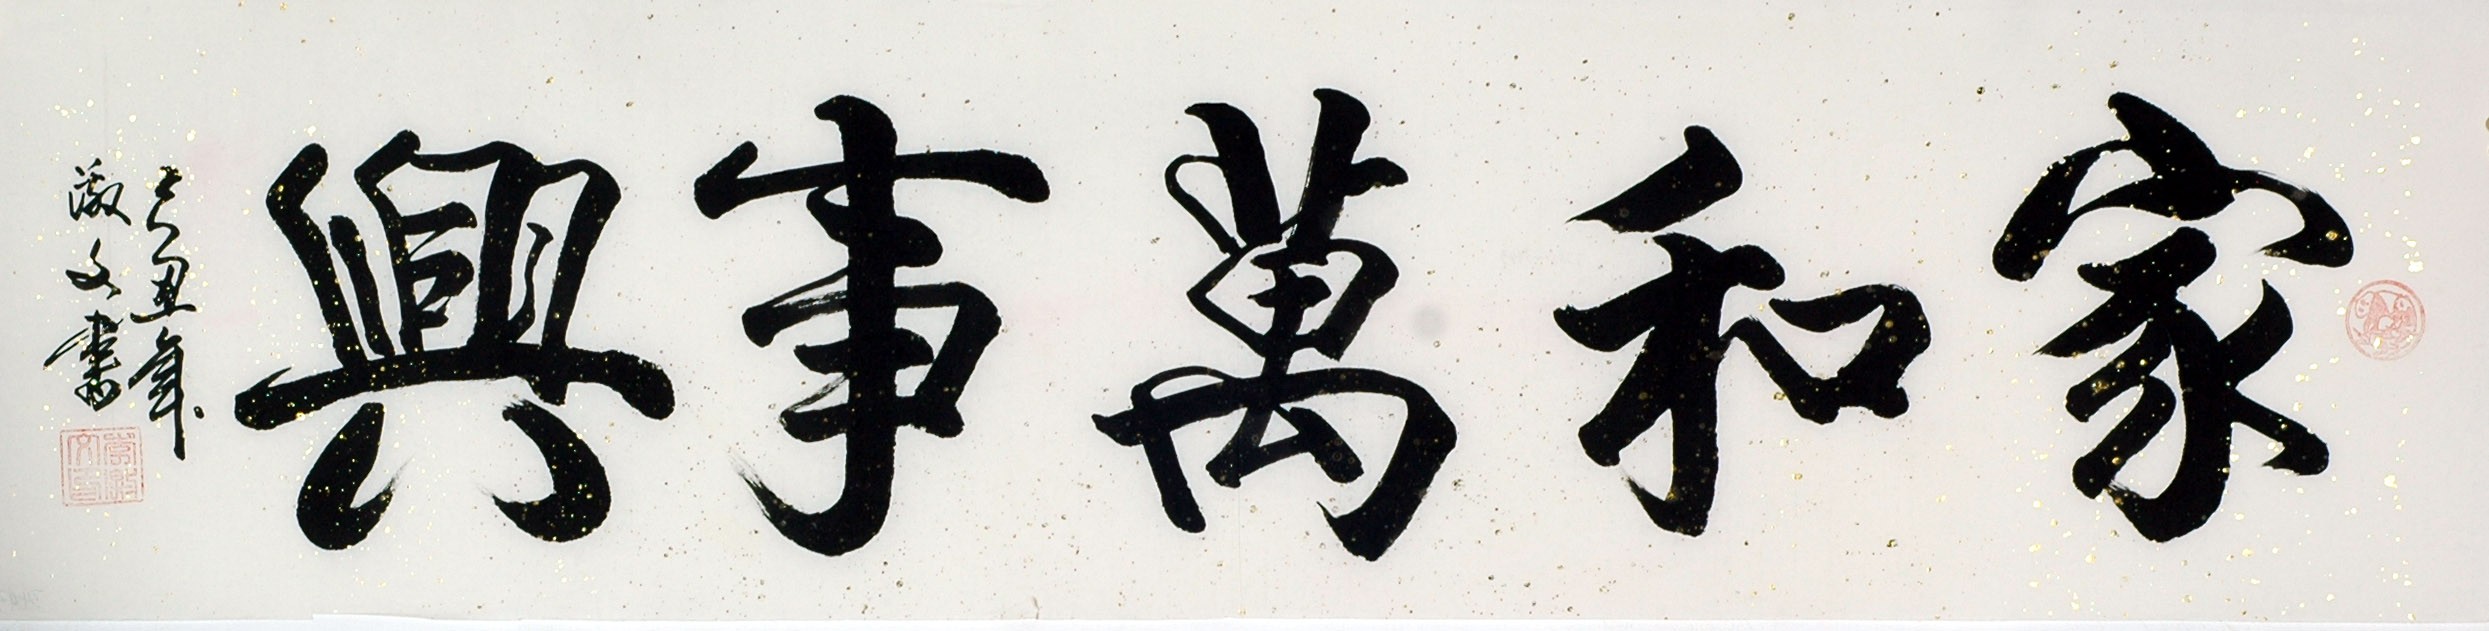 家和萬事興
己丑年
激文書